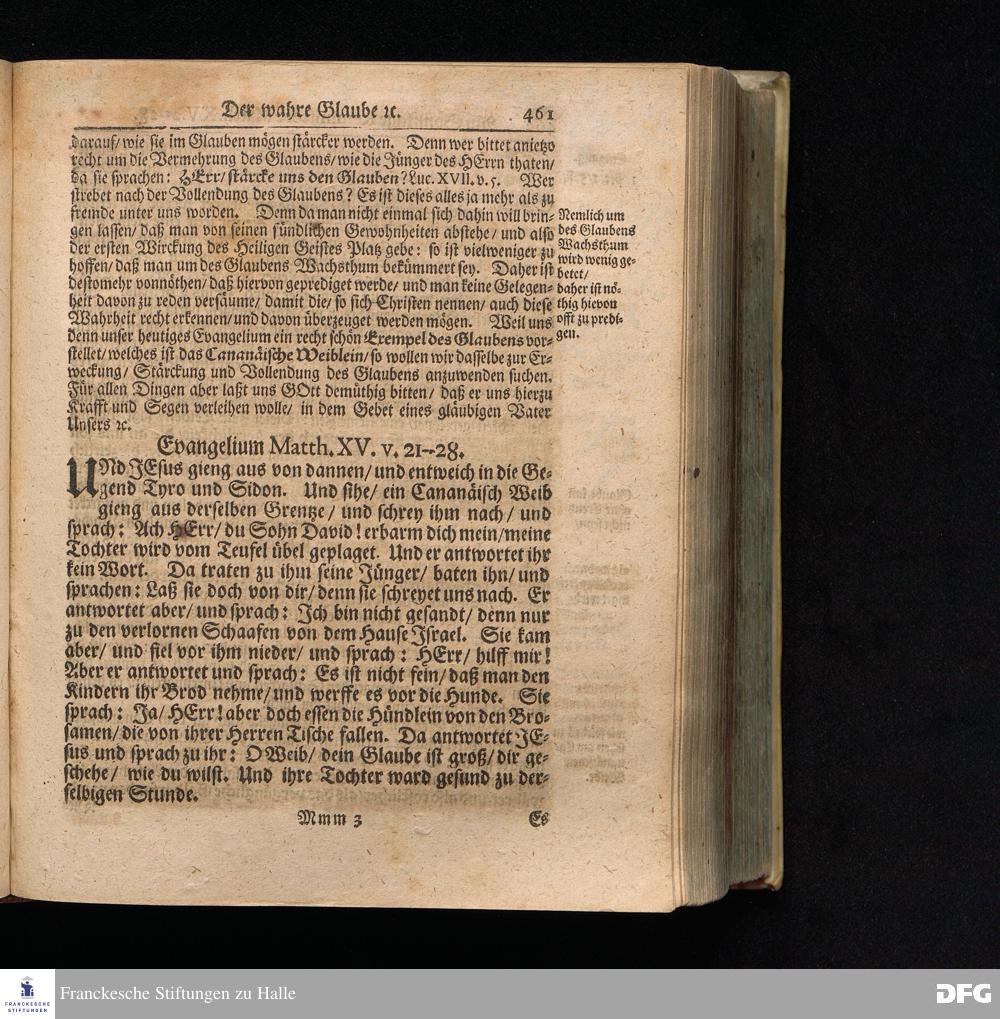 Der wahre Glaube ꝛc. 461
darauf/ wie sie im Glauben mögen stärcker werden. Denn wer bittet anietzo
recht um die Vermehrung des Glaubens/ wie die Jünger des HErrn thaten/
da sie sprachen: HErr/ stärcke uns den Glauben? Luc. XVII. v. 5. Wer
strebet nach der Vollendung des Glaubens? Es ist dieses alles ja mehr als zu
fremde unter uns worden. Denn da man nicht einmal sich dahin will brin-
gen lassen/ daß man von seinen sündlichen Gewohnheiten abstehe/ und also
der ersten Wirckung des Heiligen Geistes Platz gebe: so ist vielweniger zu
hoffen/ daß man um des Glaubens Wachsthum bekümmert sey. Daher ist
destomehr vonnöthen/ daß hiervon geprediget werde/ und man keine Gelegen-
heit davon zu reden versäume/ damit die/ so sich Christen nennen/ auch diese
Wahrheit recht erkennen/ und davon überzeuget werden mögen. Weil uns
denn unser heutiges Evangelium ein recht schön Exempel des Glaubens vor-
stellet/ welches ist das Cananäische Weiblein/ so wollen wir dasselbe zur Er-
weckung/ Stärckung und Vollendung des Glaubens anzuwenden suchen.
Für allen Dingen aber laßt uns GOtt demüthig bitten/ daß er uns hierzu
Krafft und Segen verleihen wolle/ in dem Gebet eines gläubigen Vater
Unsers ꝛc.
Nemlich um
des Glaubens
Wachsthum
wird wenig ge-
betet/
daher ist nö-
thig hievon
offt zu predi-
gen.
Evangelium Matth. XV. v. 21--28.
UNd JEsus gieng aus von dannen/ und entweich in die Ge-
gend Tyro und Sidon. Und sihe/ ein Cananäisch Weib
gieng aus derselben Grentze/ und schrey ihm nach/ und
sprach: Ach HErr/ du Sohn David! erbarm dich mein/ meine
Tochter wird vom Teufel übel geplaget. Und er antwortet ihr
kein Wort. Da traten zu ihm seine Jünger/ baten ihn/ und
sprachen: Laß sie doch von dir/ denn sie schreyet uns nach. Er
antwortet aber/ und sprach: Ich bin nicht gesandt/ denn nur
zu den verlornen Schaafen von dem Hause Israel. Sie kam
aber/ und fiel vor ihm nieder/ und sprach: HErr/ hilff mir!
Aber er antwortet und sprach: Es ist nicht fein/ daß man den
Kindern ihr Brod nehme/ und werffe es vor die Hunde. Sie
sprach: Ja/ HErr! aber doch essen die Hündlein von den Bro-
samen/ die von ihrer Herren Tische fallen. Da antwortet JE-
sus und sprach zu ihr: O Weib/ dein Glaube ist groß/ dir ge-
schehe/ wie du wilst. Und ihre Tochter ward gesund zu der-
selbigen Stunde.
Mmm 3 Es
FRANCKESCHE
STIFTUNGEN
Franckesche Stiftungen zu Halle
DFG